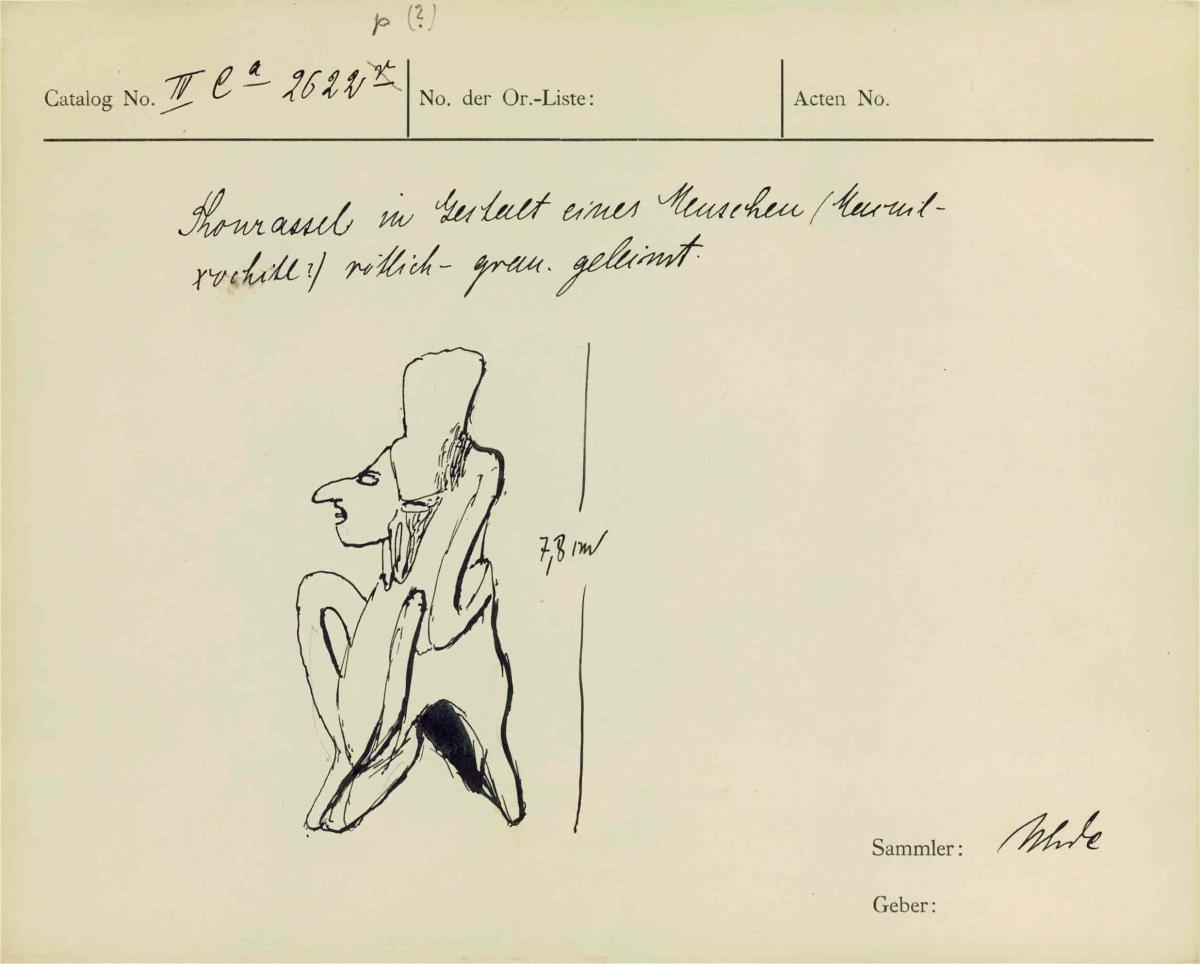 p (?)
Catalog No. IV C a 2622 r
No. der Or.-Liste:
Acten No.
Thonrassel in Gestalt eines Menschen (Macuil-
xochitl?) rötlich-grau. geleimt.
7,8 cm
Sammler: Uhde
Geber: